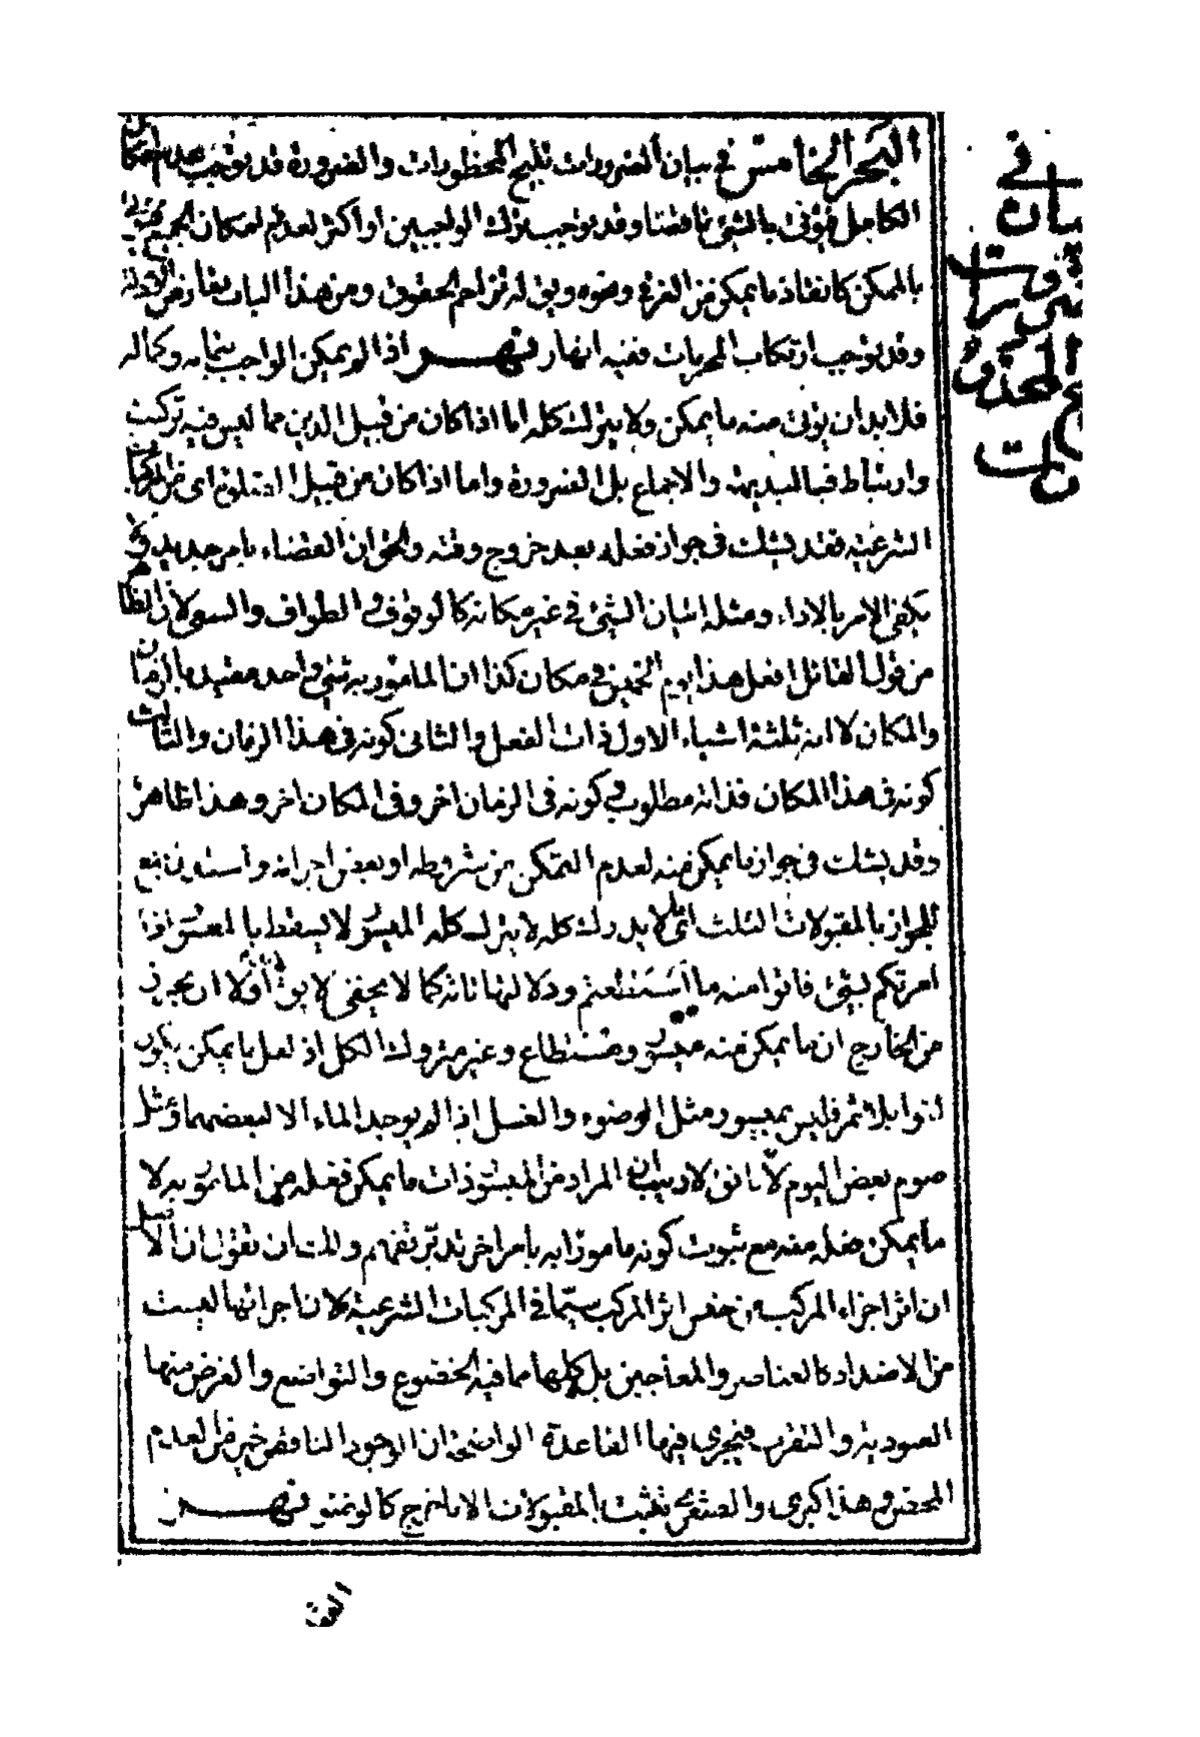 البحر الخامس في بيان الضرورات تبيح المحظورات والضرورة قد توجب عدم امكان
الكامل فيؤتى بالشئ ناقصا وقد توجب ترك الواجبين او اكثر لعدم امكان الجمع
بالممكن كانقاذ ما يمكن من الغرقى ونحوه ويق له تزاحم الحقوق ومن هذا الباب تعارض الادلة
وقد توجب ارتكاب المحرمات ففيه انهار نهر اذا لم يمكن الواجب بتمامه وكماله
فلابد ان يؤتى منه ما يمكن ولا يترك كله اما اذا كان من قبيل الدين مما ليس فيه تركيب
وارتباط فبالبديهة والاجماع بل الضرورة واما اذا كان من قبيل من المركبات
الشرعية فقد يشك في جواز فعله بعد خروج وقته والحق ان القضاء بامر جديد ولا
يكفى الامر بالاداء ومثله اتيان الشئ في غير مكانه كالوقوف والطواف والسعى لان الظاهر
من قول القائل افعل هذا يوم الخميس في مكان كذا ان المامور به شئ واحد مقيد بالزمان
والمكان لا انه ثلثة اشياء الاول ذات الفعل والثانى كونه فى هذا الزمان والثالث
كونه فى هذا المكان فذاته مطلوب وكونه فى الزمان اخر وفى المكان اخر وهذا ظاهر
وقد يشك فى جواز ما يمكن منه لعدم التمكن من شروطه او بعض اجزائه
للجواز بالمقبولات الثلث ما لا يدرك كله لا يترك كله الميسور لا يسقط بالمعسور اذا
امرتكم بشئ فاتوا منه ما استطعتم ودلالتها تامة كما لا يخفى لا يق اولا ان
من الخارج ان ما يمكن منه ميسور ومستطاع وغير متروك الكل اذ لعل ما يمكن يكون
لغوا بلا ثمر فليس بميسور مثل الوضوء والغسل اذا لم يوجد الماء الا لبعضهما ومثل
صوم بعض اليوم لانا نق لا ريب ان المراد من الميسور ذات ما يمكن فعله من المامور به لا
ما يمكن فعله منه مع ثبوت كونه مامورا به بامر اخر تدبر تفهم ولك ان تقول ان الاصل
ان اثر اجزاء المركب من جنس اثر المركب سيما فى المركبات الشرعية لان اجزائها ليست
من الاضداد كالعناصر والمعاجين بل كلها مما فيه الخضوع والتواضع والغرض منها
العبودية والتقرب فيجرى فيها القاعدة الواضحة ان الوجود الناقص خير من العدم
المحض وهذا كبرى والصغرى تثبت بالمقبولات الا ما خرج نهر
في
بيان